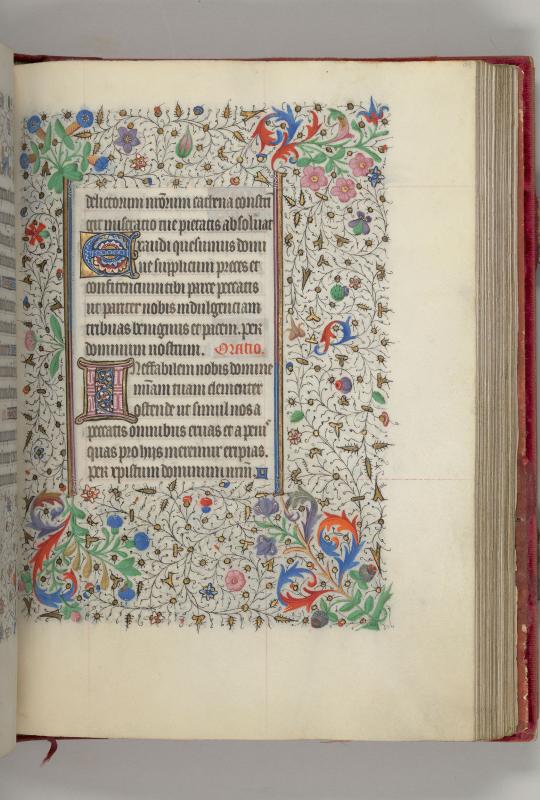 delictorum nr̄orum cathena constri
git miseratio tue pietatis absoluat
Exaudi quesumus domi
ne supplicum preces et
confitentium tibi parce peccatis
ut pariter nobis indulgentiam
tribuas benignus et pacem. per
dominum nostrum. Oratio.
Ineffabilem nobis domine
mīam tuam clementer
ostende ut simul nos a
peccatis omnibus exuas et a peni
quas pro hijs meremur eripias.
per xp̄istum dominum nr̄m.